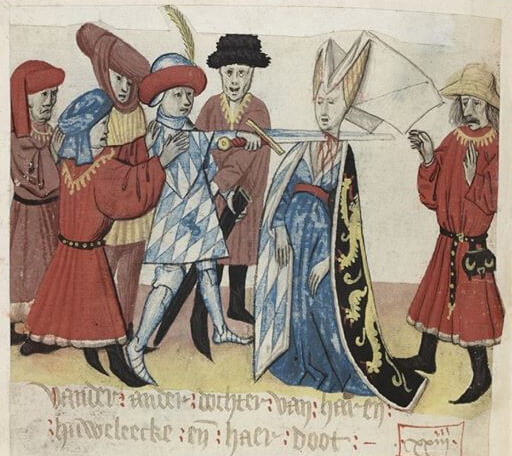 vander : ander : dochter : van : haren :
huweleecke : en̄ : haer : doot : –
xxiij